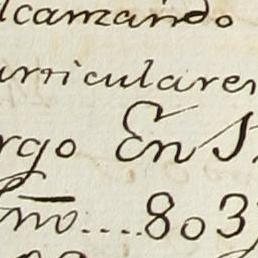 lcanzando
urriculares
rgo En S
mo....803